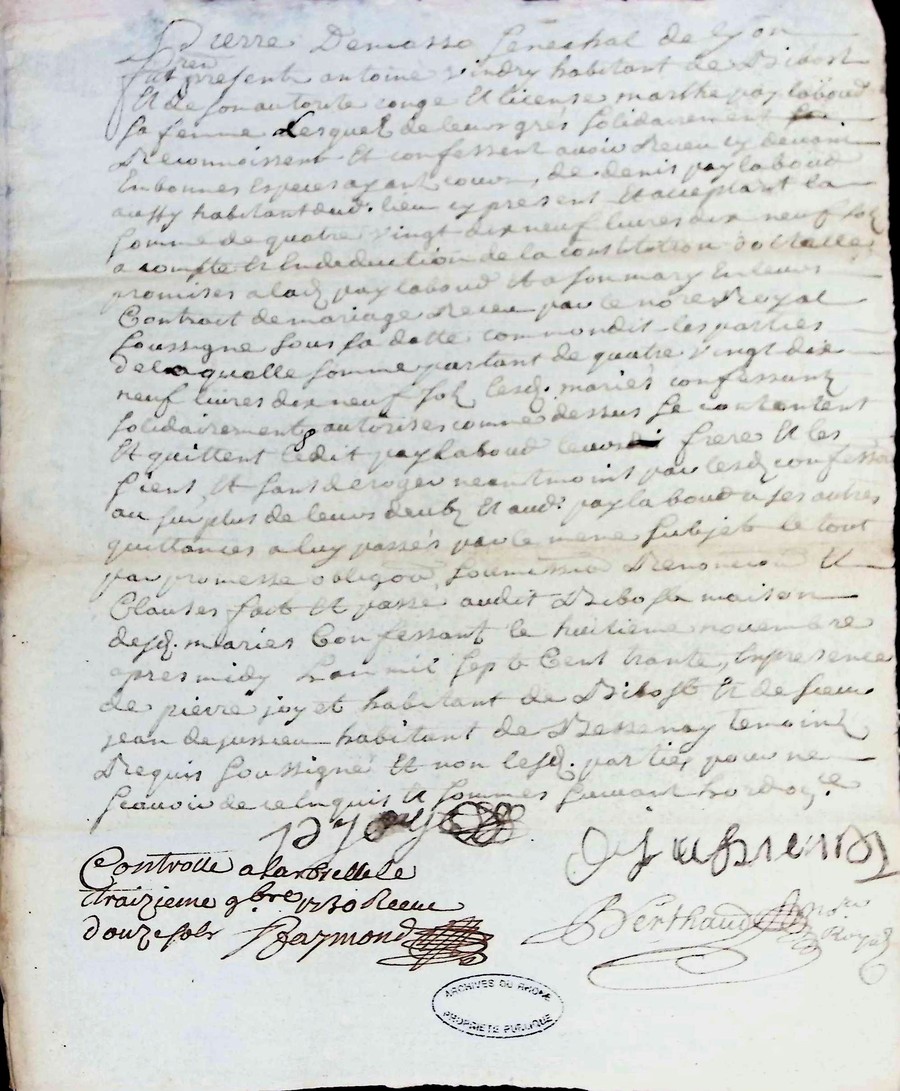 Pierre Demasso Senechal de Lyon
fut present antoine Vindry habitant de Bibost
Et de son autorité conge Et license marthe paylaboud
sa femme Lesquels de leurs gres solidairement
Reconnoissent Et confessent avoir Receu cy devant
En bonnes Especes ayant cours, de denis paylaboud
aussy habitant dud. lieu cy present Et acceptant la
somme de quatre vingt dix neuf livres dix neuf sols
a compte Et En deduction de la constitution dottalle
promises a lad. paylaboud Et a son mary En leurs
Contract de mariage Receu par le nore Royal
soussigne sous sa datte comme ont dit les parties
de laquelle somme partant de quatre vingt dix
neuf livres dix neuf sols lesd. mariés confessants
solidairement & autorises comme dessus se contentent
Et quittent ledit paylaboud leur frere Et les
siens Et sans deroger neantmoins par lesd. confessa
au surplus de leurs deubs Et aud. paylaboud a ses autres
quittances a luy passés par le meme subjet le tout
par promesse obligõn, soumission Renonciõn Et
Clauses fait Et passé audit Bibost maison
desd. mariés Confessant le huitieme novembre
apres midy L'an mil sept Cent trante, En presence
de pierre joyet habitant de Bibost Et de sieur
jean dejussieu habitant de Bessenay temoins
Requis soussignés Et non lesd. parties pour ne
scavoir de ce Enquis Et sommes suivant l'ordoñce
p joyet
Dejussieu
Controllé a larbresle le
traizieme 9bre 1730 Receu
douze sols Raymond
Berthaud nore Royal
ARCHIVES DU RHÔNE
PROPRIÉTÉ PUBLIQUE